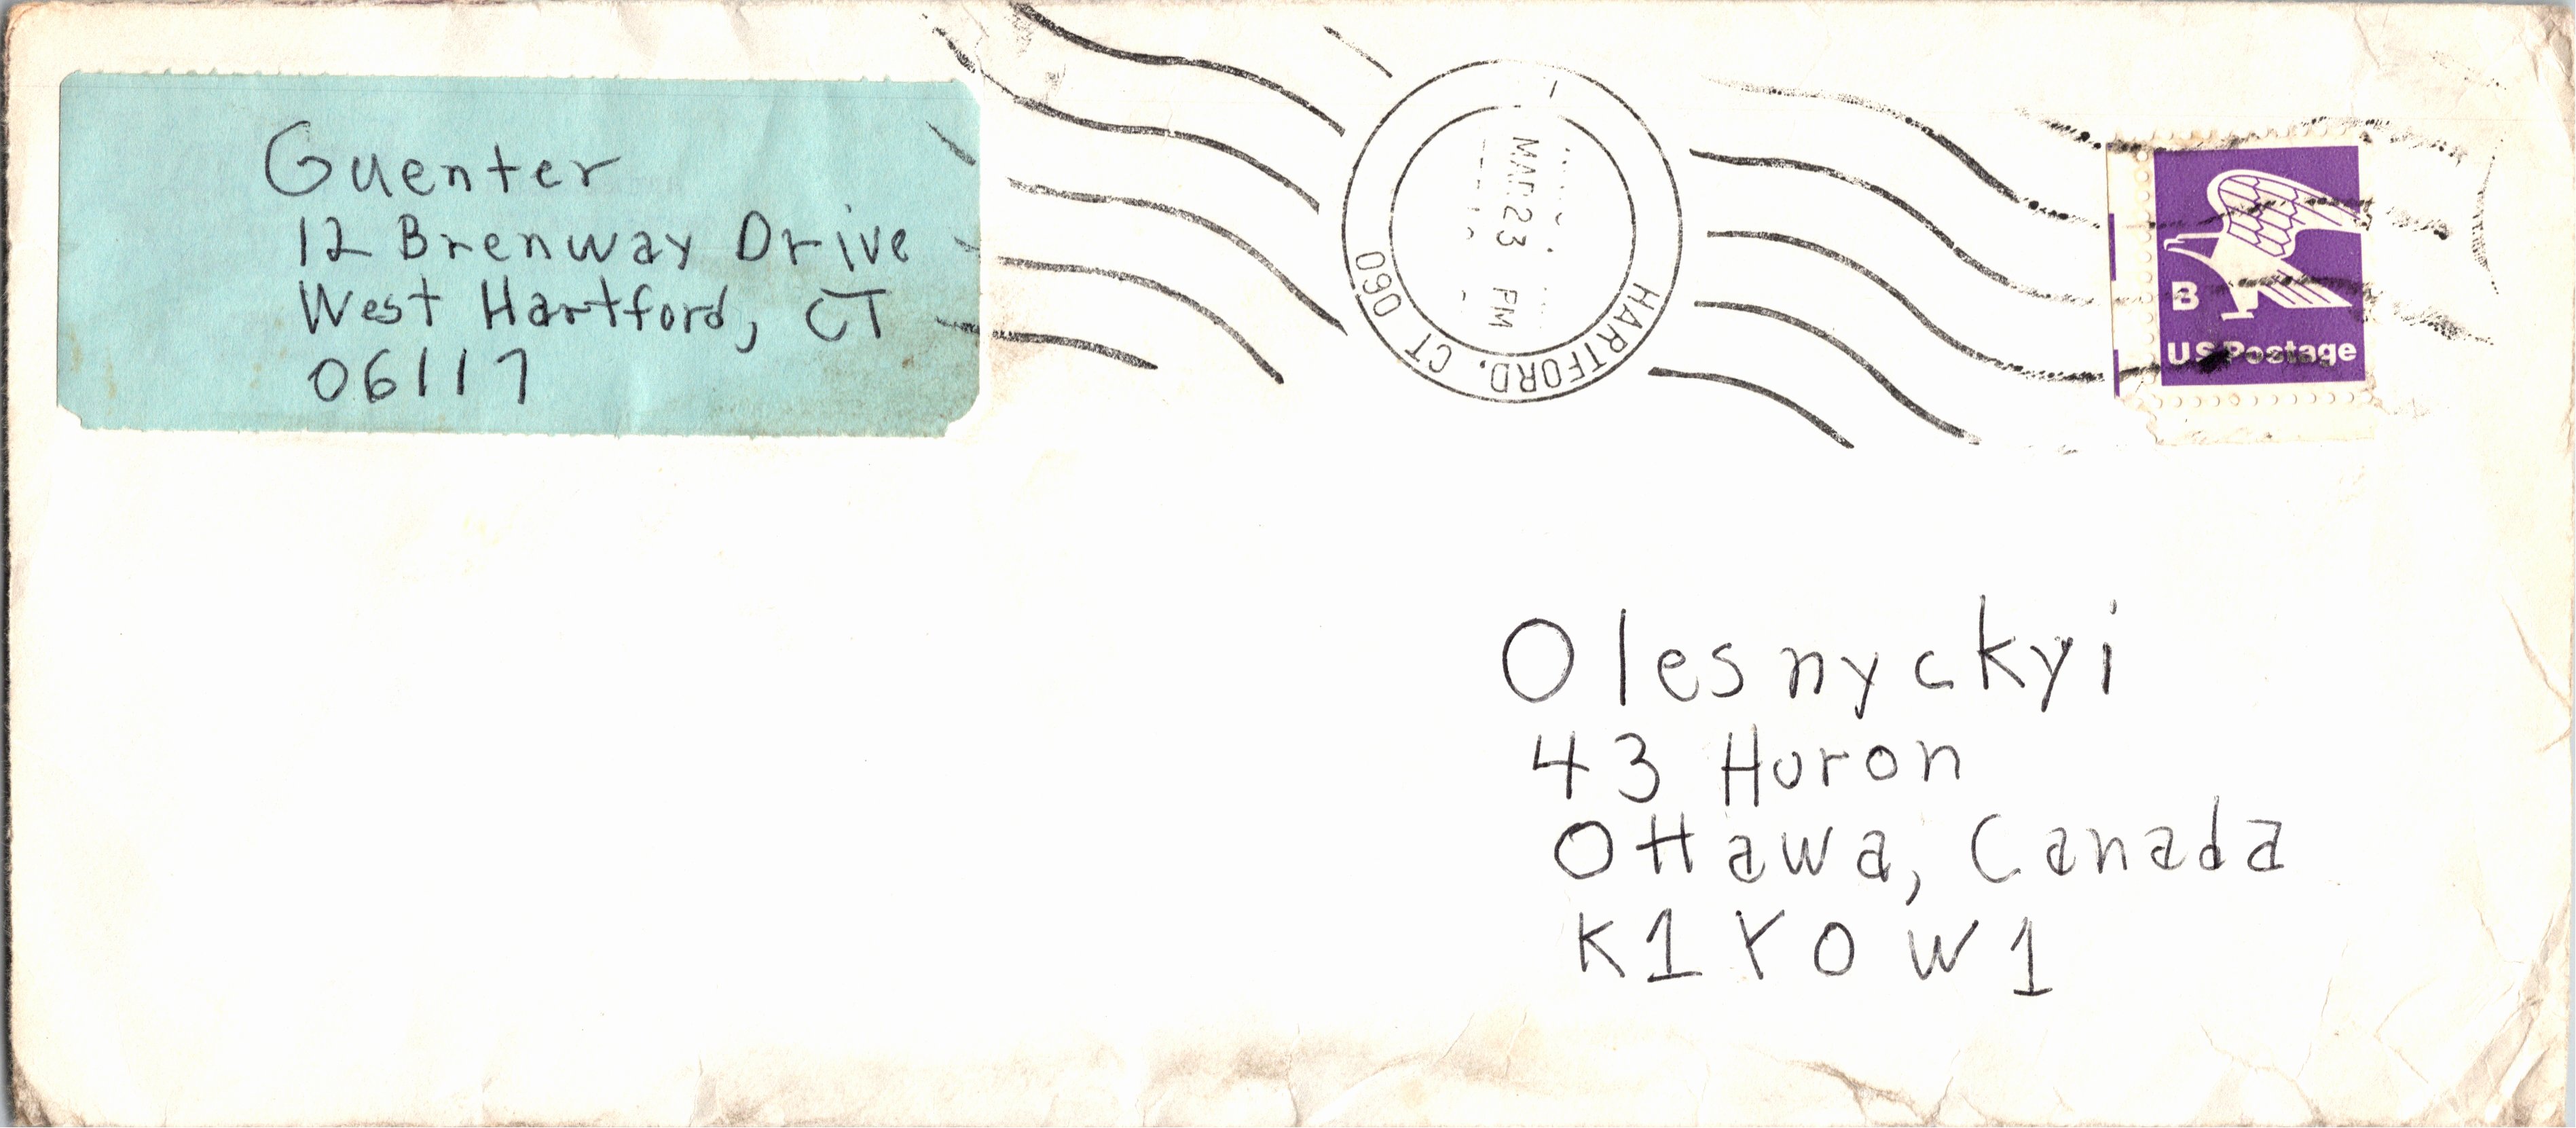 Guenter
12 Brenway Drive
West Hartford, CT
06117
HARTFORD, CT 060
MAR 23 PM
B
US Postage
Olesnyckyi
43 Huron
Ottawa, Canada
K1Y0W1